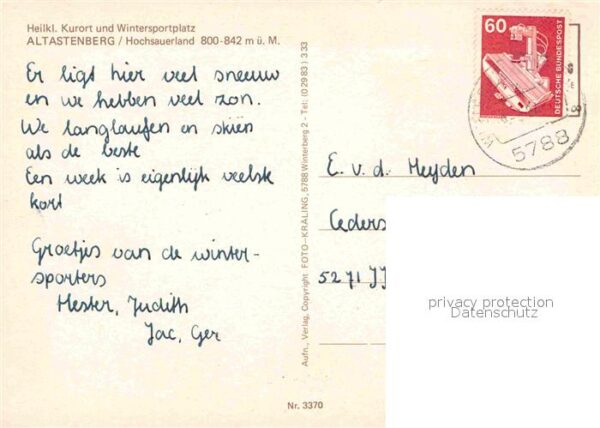 Heilkl. Kurort und Wintersportplatz
ALTASTENBERG / Hochsauerland 800-842 m ü. M.
Er ligt hier veel sneeuw
en we hebben veel zon.
We langlaufen en skiën
als de beste
Een week is eigenlijk veelste
kort
Groetjes van de winter-
sporters
Hester, Judith
Jac, Ger
Aufn., Verlag, Copyright FOTO-KRALING, 5788 Winterberg 2 - Tel: (0 29 83) 3 33
Nr. 3370
60
DEUTSCHE BUNDESPOST
5788
E. v. d. Heyden
Ceders
5271 JJ
privacy protection
Datenschutz